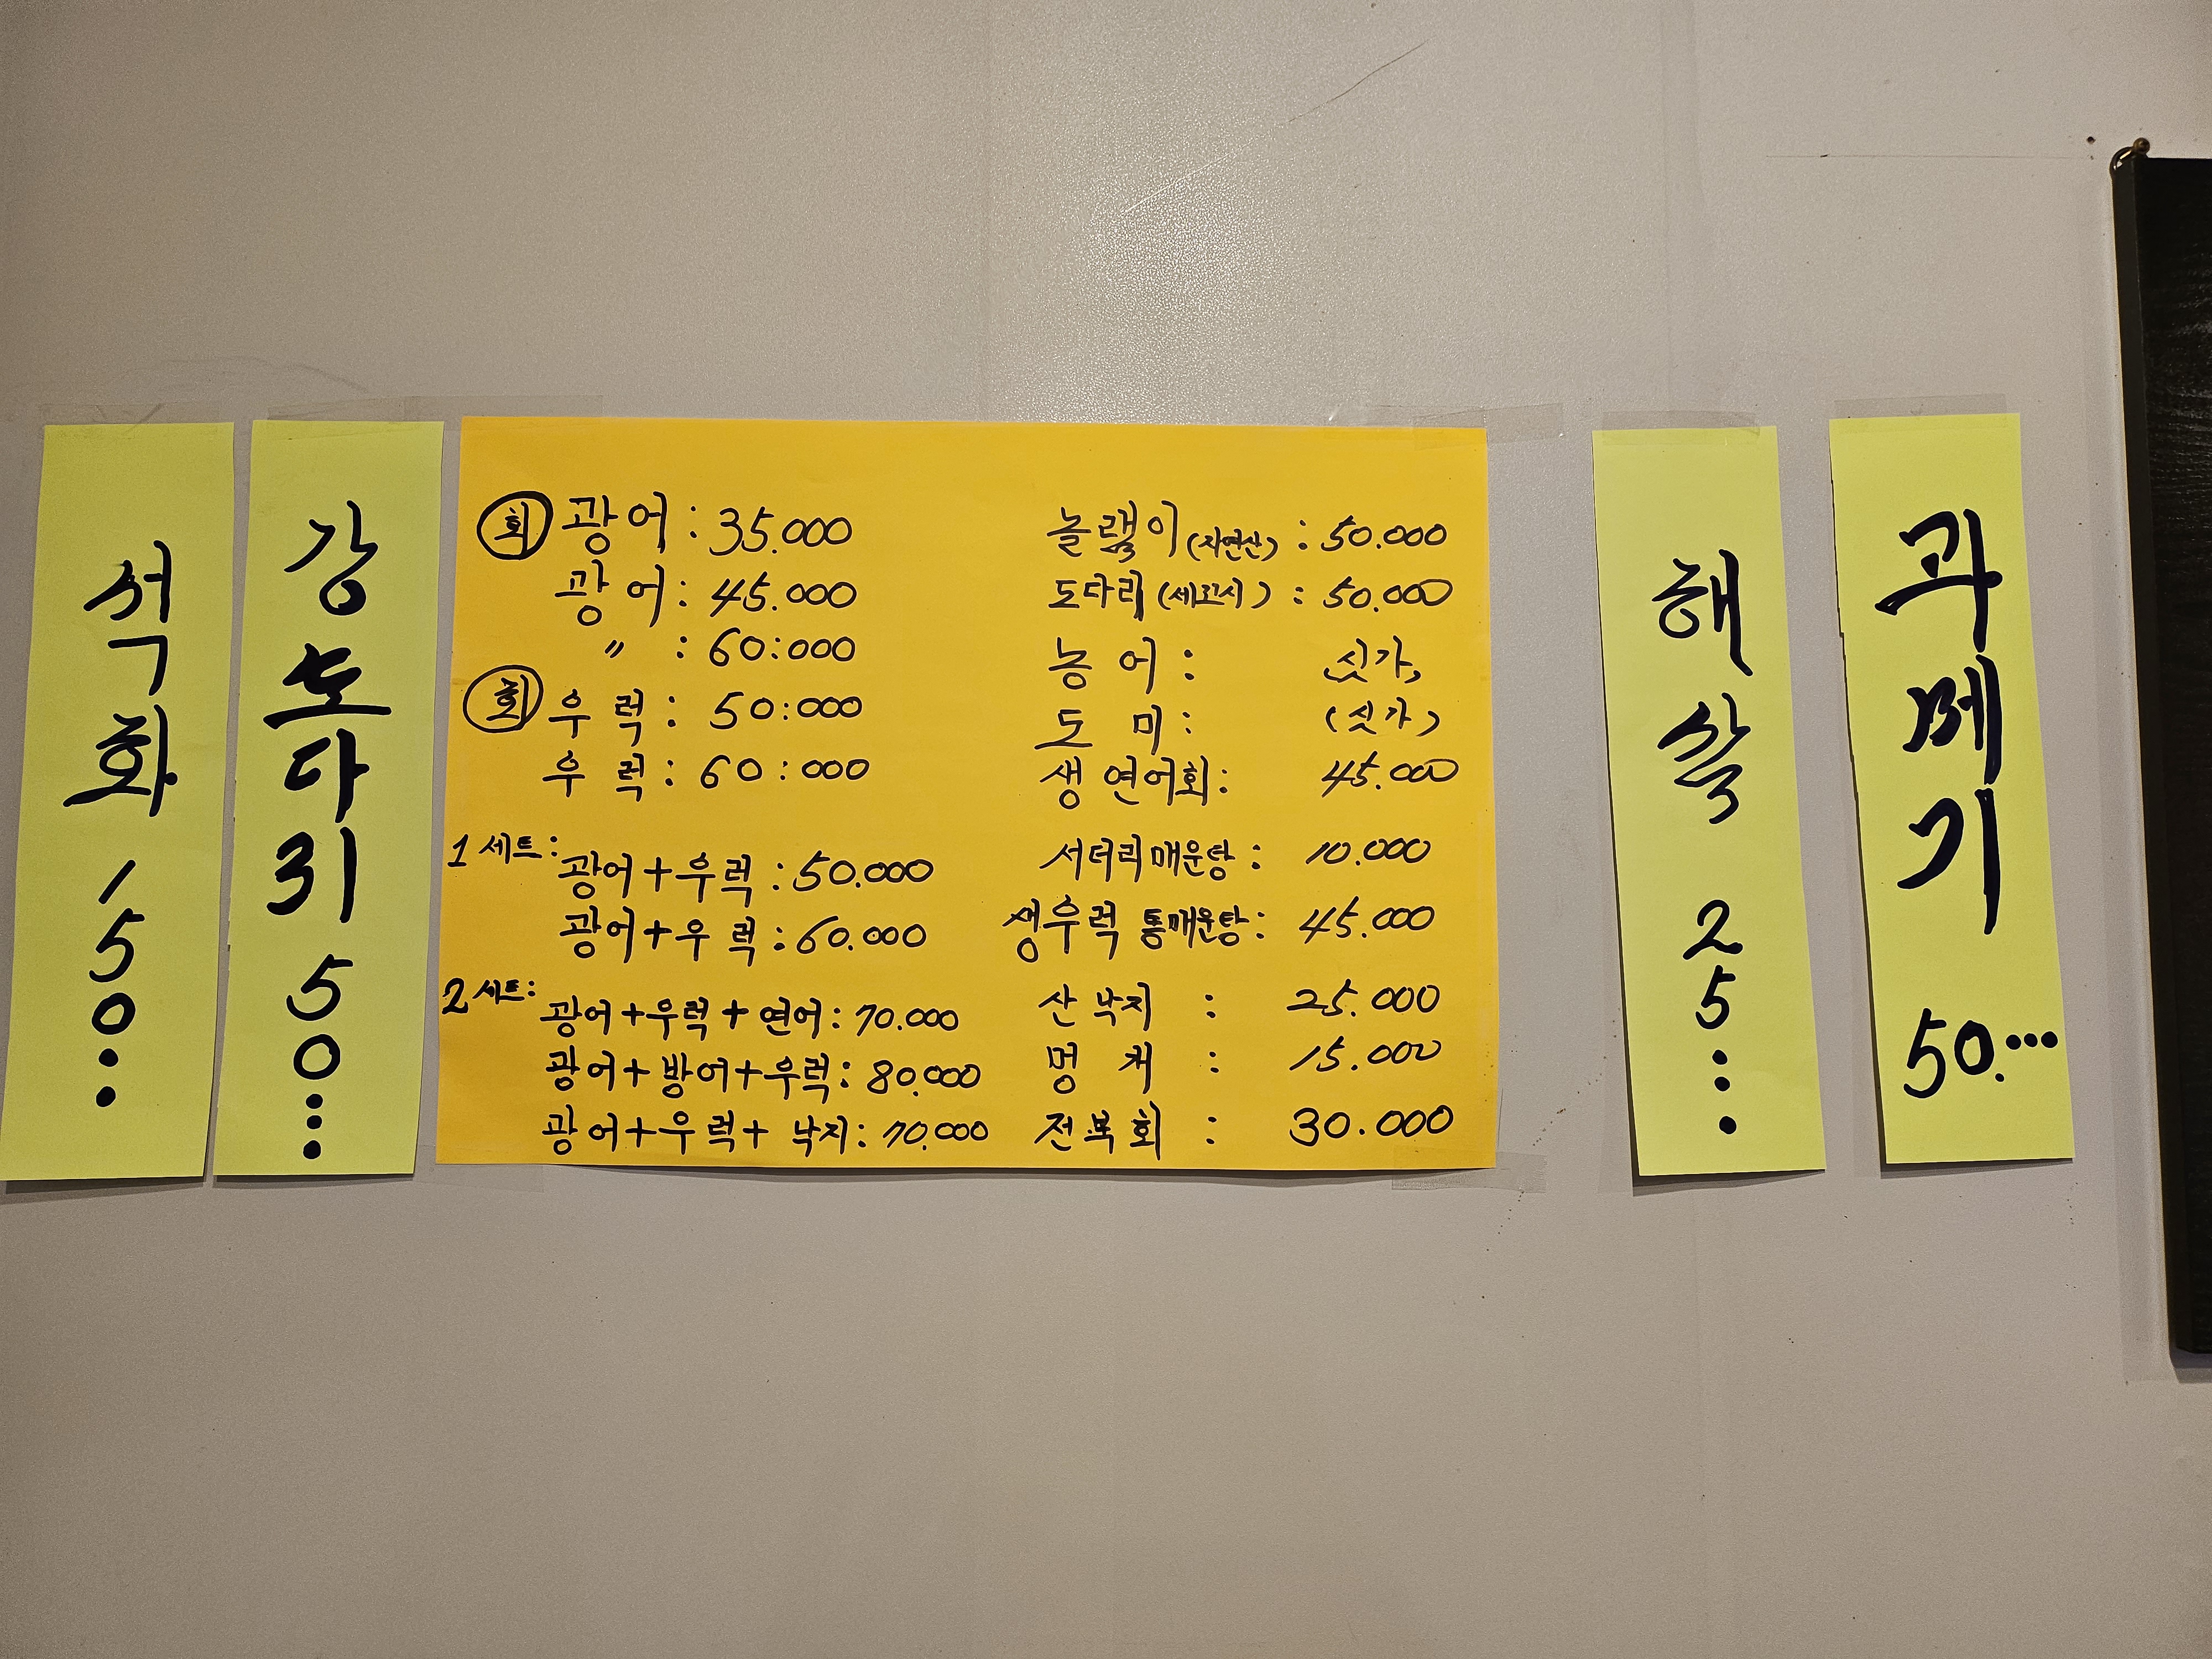 석화 150··
강도다리 50···
회 광어 : 35.000
광어 : 45.000
〃 : 60:000
회 우럭 : 50:000
우럭 : 60:000
1세트 :
광어+우럭 : 50.000
광어+우럭 : 60.000
2세트 :
광어+우럭+연어 : 70.000
광어+방어+우럭 : 80.000
광어+우럭+낙지 : 70.000
놀램이(자연산) : 50.000
도다리(세꼬시) : 50.000
농어 : 싯가,
도미 : (싯가)
생연어회 : 45.000
서더리매운탕 : 10.000
생우럭 통매운탕 : 45.000
산낙지 : 25.000
멍게 : 15.000
전복회 : 30.000
해삼 25···
과메기 50.···